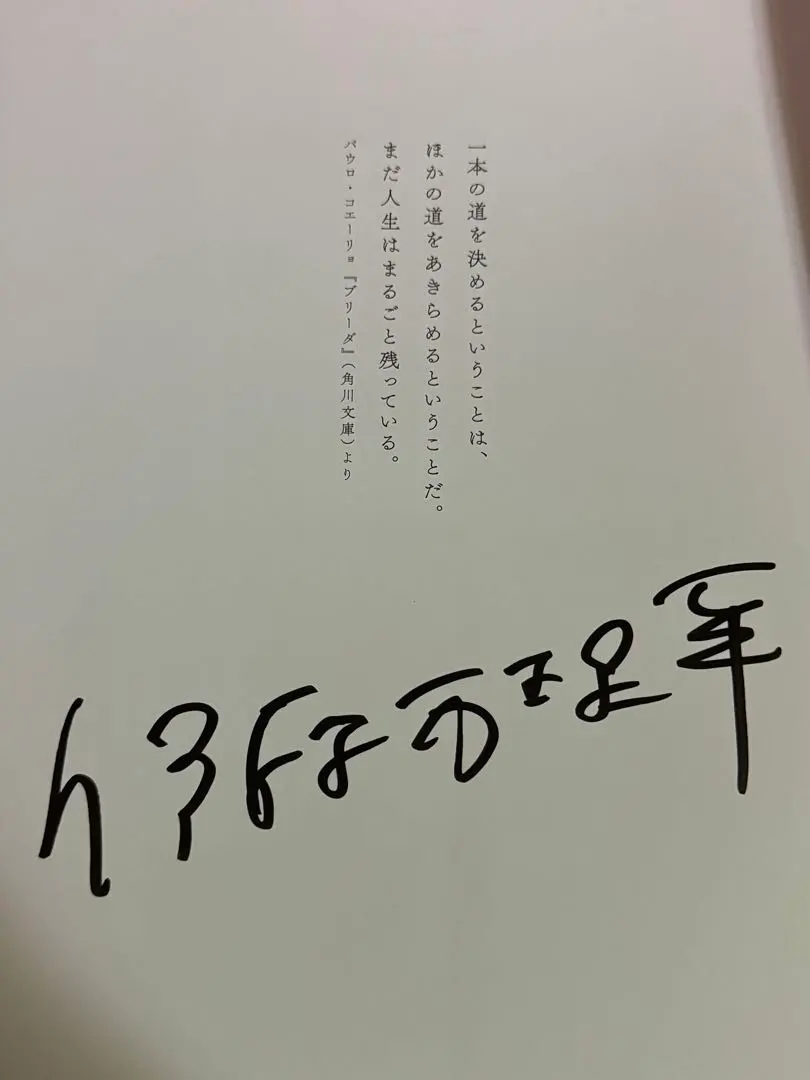 一本の道を決めるということは、
ほかの道をあきらめるということだ。
まだ人生はまるごと残っている。
パウロ・コエーリョ『ブリーダ』（角川文庫）より
伊藤万理華